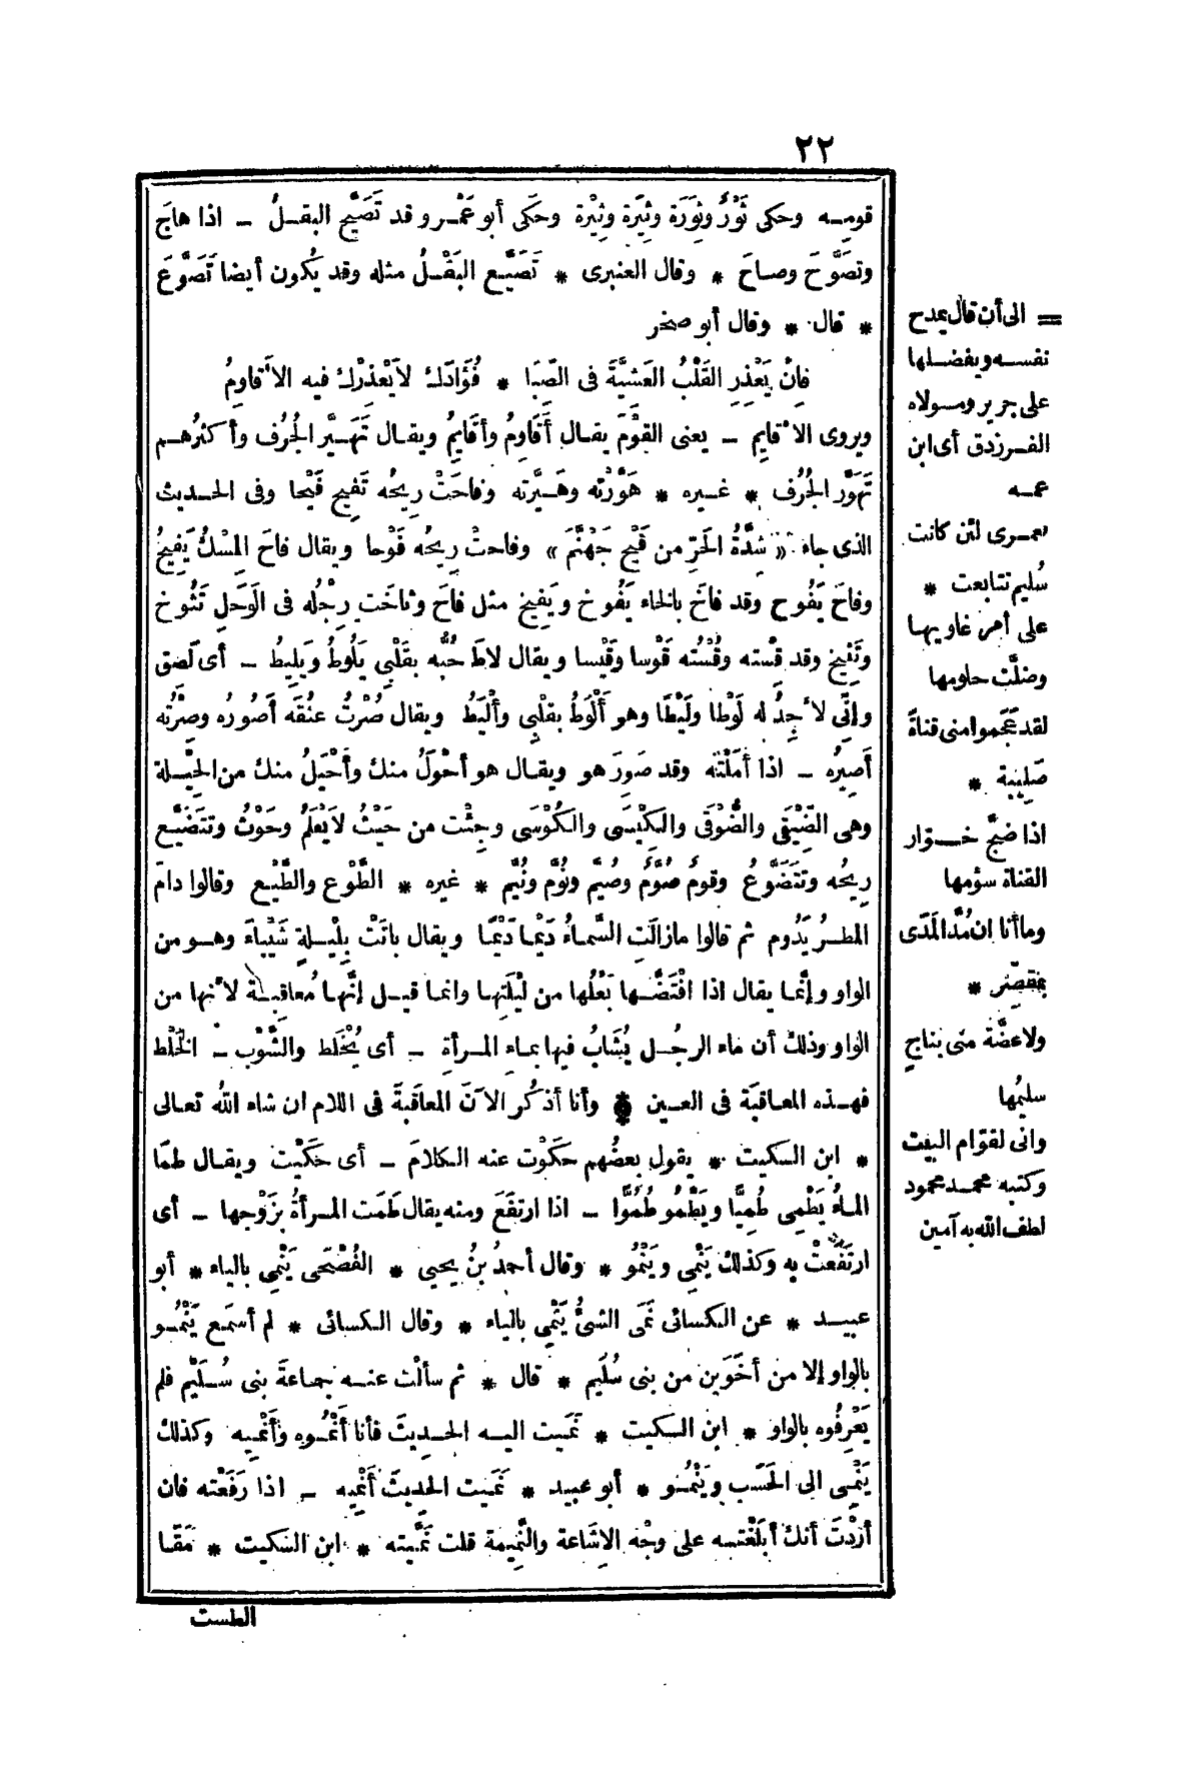 ٢٢
قومه وحكى ثَوْر وثِوَرَة وثِيَرَة وثِيْرة وحَكَى أبو عَمْرو قد تَصَيَّح البقلُ – اذا هاجَ
وتصَوَّحَ وصاحَ * وقال العنبرى * تَصَيَّع البَقْلُ مثله وقد يكون أيضا تَصَوَّعَ
* قال * وقال أبو صخر
فإنْ يَعْذِرِ القَلْبُ العَشِيَّةَ فى الصِّبَا * فُؤَادَكَ لا يَعْذِرْكَ فيه الأقاوِمُ
ويروى الأقايِم – يعنى القوْمَ يقال أَقَاوِمُ وأَقَايِمُ ويقال تَهَيَّر الجُرُف وأكثرُهم
تَهَوَّر الجُرُف * غيره * هَوَّرْته وهَيَّرته وفاحَتْ رِيحُه تَفِيح فَيْحا وفى الحديث
الذى جاء « شِدَّةُ الحَرِّ من فَيْح جَهَنَّمَ » وفاحتْ رِيحُه فَوْحا ويقال فاحَ المِسْكُ يَفِيحُ
وفاحَ يَفُوح وقد فاخَ بالخاء يَفُوخ ويَفِيخ مثل فاحَ وثاخَت رِجْلُه فى الوَحَلِ تَثُوخ
وتَثِيخ وقد قِسْته وقُسْتُه قَوْسا وقَيْسا ويقال لاطَ حُبُّه بقَلْبى يَلُوطُ ويَلِيطُ – أى لَصِق
وإنِّى لأَجِدُ له لَوْطا ولَيْطًا وهو أَلْوَطُ بقلْبِى وأَلْيَطُ ويقال صُرْتُ عنُقَه أَصُورُه وصِرْتُه
أَصِيرُه – اذا أمَلْته وقد صَوِرَ هو ويقال هو أَحْوَلُ منك وأَحْيَلُ منك من الحِيْلة
وهى الضِّيْقَى والضُّوقَى والكِيْسَى والكُوْسَى وجِئْت من حَيْثُ لا يَعْلَمُ وحَوْثُ وتتضَيَّع
رِيحُه وتَتَضَوَّعُ وقوم صُوَّمٌ وصُيَّم ونُوَّم ونُيَّم * غيره * الطَّوْع والطَّيْع وقالوا دامَ
المطر يَدُوم ثم قالوا مازالَتِ السَّماءُ دَيْما دَيْمًا ويقال باتَتْ بِلَيْلةِ شَيْباءَ وهو من
الواو وإنَّما يقال اذا افْتَضَّها بَعْلُها من لَيْلَتِها وانما قيل إنَّها مُعاقِبة لأنها من
الواو وذلك أن ماء الرجُل يُشَابُ فيها بماء المرأةِ – أى يُخْلَط والشَّوْب – الخَلْط
فهذه المعاقبَة فى العين * وأنا أذكُر الآنَ المعاقَبةَ فى اللام ان شاء اللهُ تعالى
* ابن السكيت * يقول بعضُهم حَكَوْت عنه الكلامَ – أى حَكَيْت ويقال طمَا
الماءُ يَطْمِى طُمِيًّا ويَطْمُو طُمُوًّا – اذا ارتفَعَ ومنه يقال طَمَت المرأةُ بزَوْجها – أى
ارتَفَعتْ به وكذلك يَنْمِى ويَنْمُو * وقال أحمدُ بنُ يحيى * الفُصْحَى يَنْمِى بالياء * أبو
عبيد * عن الكسائى نَمَى الشئُ يَنْمِى بالياء * وقال الكسائى * لم أسمَع يَنْمُو
بالواو إلا من أخَوَين من بنى سُلَيم * قال * ثم سألت عنه جماعةَ بنى سُلَيْم فلم
يَعْرِفُوه بالواو * ابن السكيت * نَمَيت اليه الحديثَ فأنا أَنْمُوه وأَنْمِيه وكذلك
يَنْمِى الى الحَسَب ويَنْمُو * أبو عبيد * نَمَيت الحديثَ أَنْمِيه – اذا رَفَعْته فان
أردْتَ أنك أبلَغْته على وجْه الإِشَاعة والنَّمِيمة قلت نَمَّيته * ابن السكيت * مَقَا
الطست
= الى أن قال يمدح
نفسه ويفضلها
على جرير ومولاه
الفرزدق أى ابن
عمه
لعمرى لئن كانت
سُليم تتابعت *
على أمر غاويها
وضلَّت حلومها
لقد عَجَموا منى قناةً
صَلِيبة *
اذا ضجَّ خوّار
القناة سؤمها
وما أنا ان مُدَّ المَدَى
بمقصِّر *
ولا عضَّة منى بناجٍ
سليمُها
وانى لقوّام البيت
وكتبه محمد محمود
لطف الله به آمين